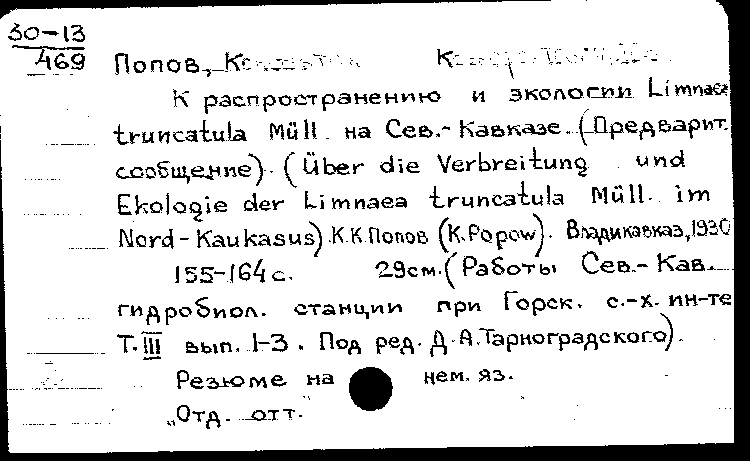 30-13
469
Попов,
К распространению и экологии Limnaea
truncatula Müll. на Сев.-Кавказе. (Предварит.
сообщение). (Über die Verbreitung und
Ekologie der Limnaea truncatula Müll. im
Nord-Kaukasus). К.К.Попов (K.Popow). Владикавказ, 1930
155-164 с. 29см. (Работы Сев.-Кав.
гидробиол. станции при Горск. с.-х. ин-те
Т.III вып. 1-3. Под ред. Д.А.Тарноградского).
Резюме на нем. яз.
„Отд. отт."